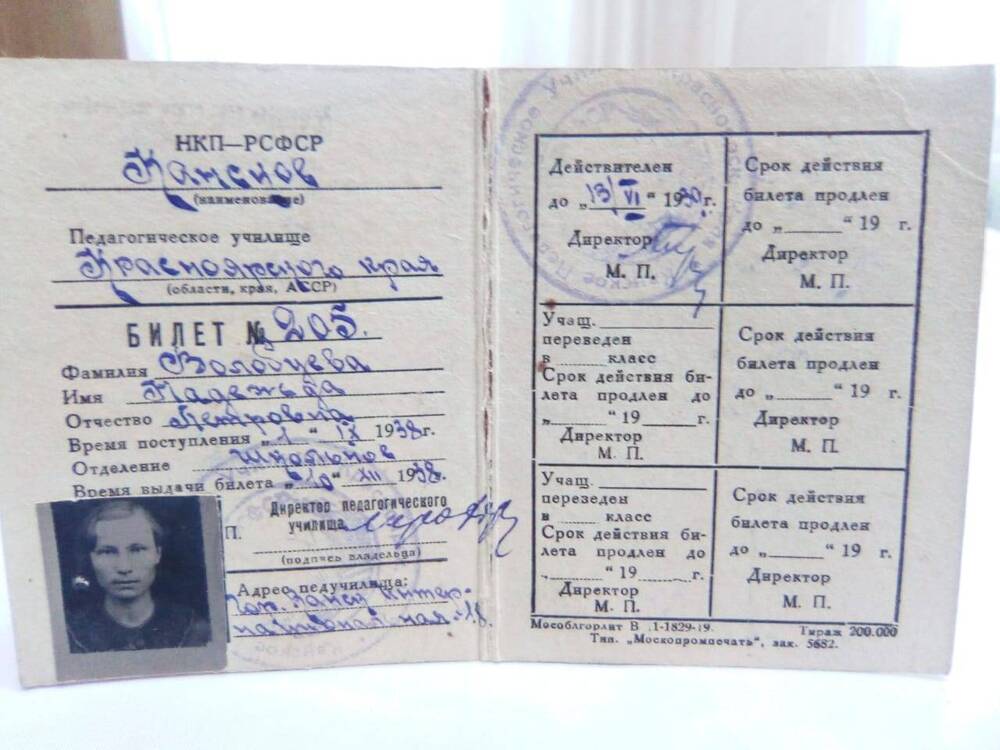 НКП—РСФСР
Канское
(наименование)
Педагогическое училище
Красноярского края
(области, края, АССР)
БИЛЕТ № 205.
Фамилия Волобуева
Имя Надежда
Отчество Петровна
Время поступления „1“ IX 1938г.
Отделение Школьное
Время выдачи билета „10“ XII 1938.
Директор педагогического
училища
П.
(подпись владельца)
Адрес педучилища:
гор. Канск Интер-
национальная-18.
Действителен
до „13/VI“ 1930г.
Директор
М. П.
Срок действия
билета продлен
до „______“ 19 г.
Директор
М. П.
Учащ.
переведен
в ______ класс
Срок действия би-
лета продлен до
„______“ 19____г.
Директор
М. П.
Срок действия
билета продлен
до „______“ 19 г.
Директор
М. П.
Учащ.
переведен
в ______ класс
Срок действия би-
лета продлен до
„______“ 19____г.
Директор
М. П.
Срок действия
билета продлен
до „______“ 19 г.
Директор
М. П.
Мособлгорлит В 1-1829-19. Тираж 200.000
Тип. „Москопромпечать“, зак. 5682.